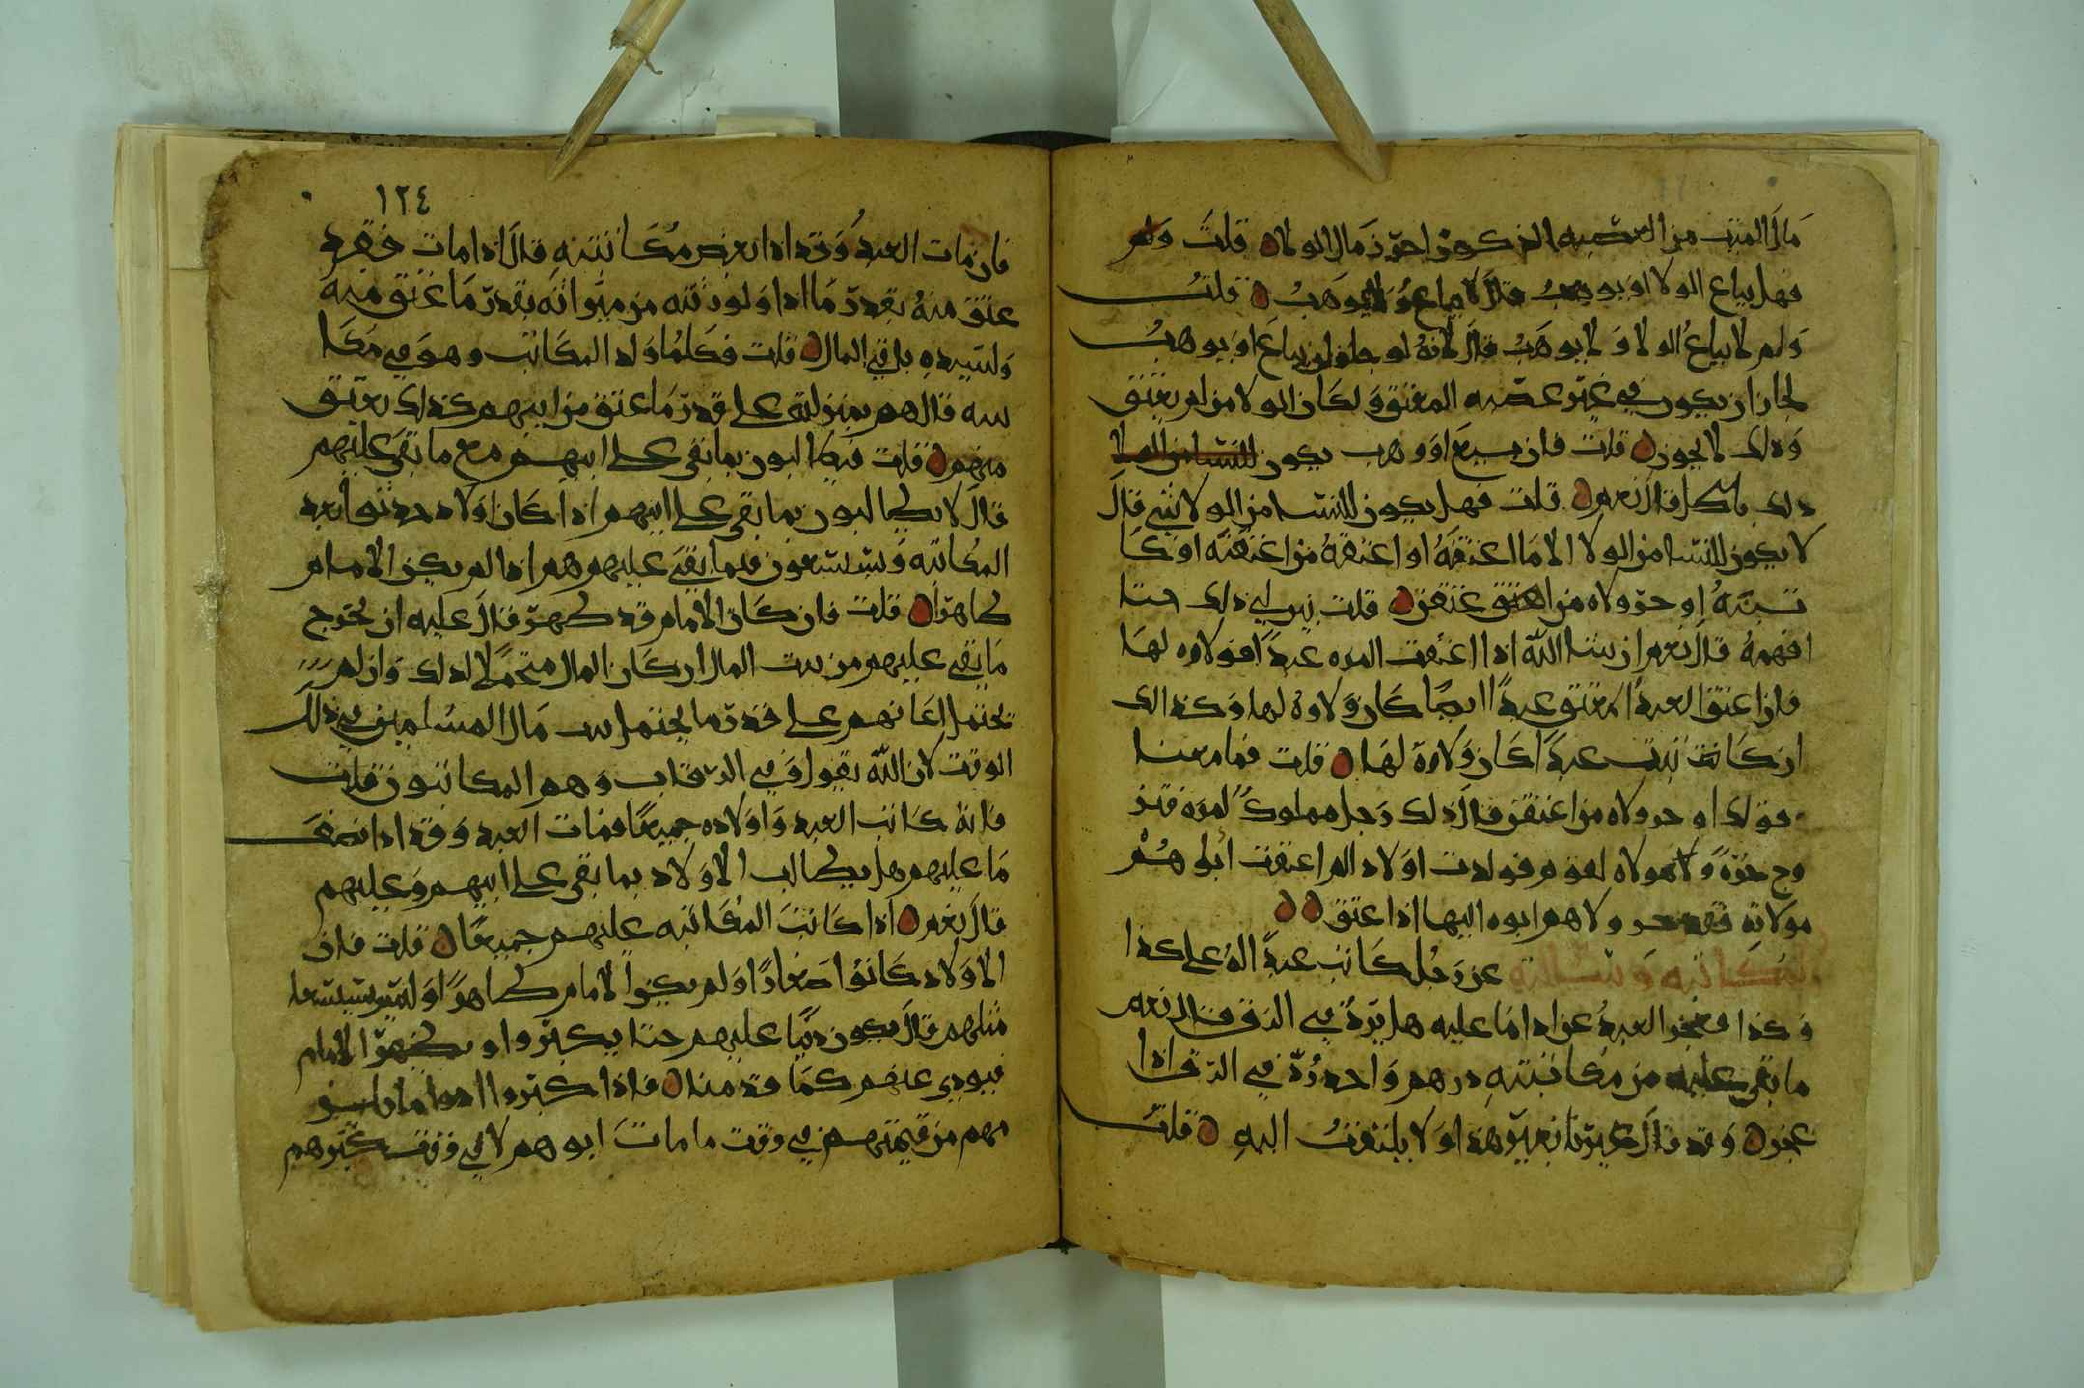 مال الميت من العصبه الذكور احرز مال الولا قلت ولم
فهل يباع الولا او يوهب قال لا يباع ولا يوهب قلت
ولم لا يباع الولا ولا يوهب قال لانه لو جاز ان يباع او يوهب
لجاز ان يكون في غير عصبه المعتق ولكان الولا لمن لم يعتق
وذلك لا يجوز قلت فان بيع او وهب يكون
ذلك باطلا قال نعم قلت فهل يكون للنسا من الولا شي قال
لا يكون للنسا من الولا الا ما اعتقه او اعتقه من اعتقنه او كا
تبنه او جر ولاه من اعتق عتقن قلت بين لي ذلك حتا
افهمه قال نعم ان شا الله اذا اعتقت المره عبدا فولاوه لها
فان اعتق العبد المعتق عبدا ايضا كان ولاوه لها وكذالك
ان كاتبت عبدا كان ولاوه لها قلت فما معنا
قولك او جر ولاه من اعتقن قال ذلك رجل مملوك لمره فتز
وج حره ولا هولاه لقوم فولدت اولاد الم اعتقت ابوهم
مولاته فقد جر ولاهم ابوه اليها اذا عتق
المكاتبه وسالته عن رجل كاتب عبدا له على كذا
وكذا فعجز العبد عن ادا ما عليه هل يرد في الرق قال نعم
ما بقي عليه من مكاتبته درهم واحد رد في الرق اذا
عجز وقد قال غيرنا بغير هذا ولا يلتفت اليه قلت
١٢٤
فان مات العبد وقد ادا بعض مكاتبته قال اذا مات فقد
عتق منه بقدر ما ادا ولورثته من ميراثه بقدر ما عتق منه
ولسيده باقي المال قلت فكلما ولد المكاتب وهو في مكا
تبته قال هم بمنزلته على قدر ما عتق من ابيهم كذلك يعتق
منهم قلت فيطالبون بما بقي على ابيهم مع ما بقي عليهم
قال لا يطالبون بما بقي على ابيهم اذا كان اولاد حدثوا بعد
المكاتبه ويستسعون فيما بقي عليهم هم اذا لم يكن الامام
ظاهرا قلت فان كان الامام قد ظهر قال عليه ان يخرج
ما بقي عليهم من بيت المال ان كان المال محتملا لذلك وان لم
يحتمل اعانهم على قدر ما يحتمل بيت مال المسلمين في ذلك
الوقت لان الله يقول وفي الرقاب وهم المكاتبون قلت
فانه كاتب العبد واولاده جميعا فمات العبد وقد ادا نصف
ما عليهم هل يطالب الاولاد بما بقي على ابيهم وعليهم
قال نعم اذا كانت المكاتبه عليهم جميعا قلت فان
الاولاد كانوا صغارا ولم يكن الامام ظاهرا وليس يستسعا
مثلهم قال يكون دينا عليهم حتا يكبروا او يظهر الامام
فيودي عنهم كما قدمنا فاذا كبروا ادوا ما
منهم من قيمتهم في وقت ما مات ابوهم لا في وقت كبرهم